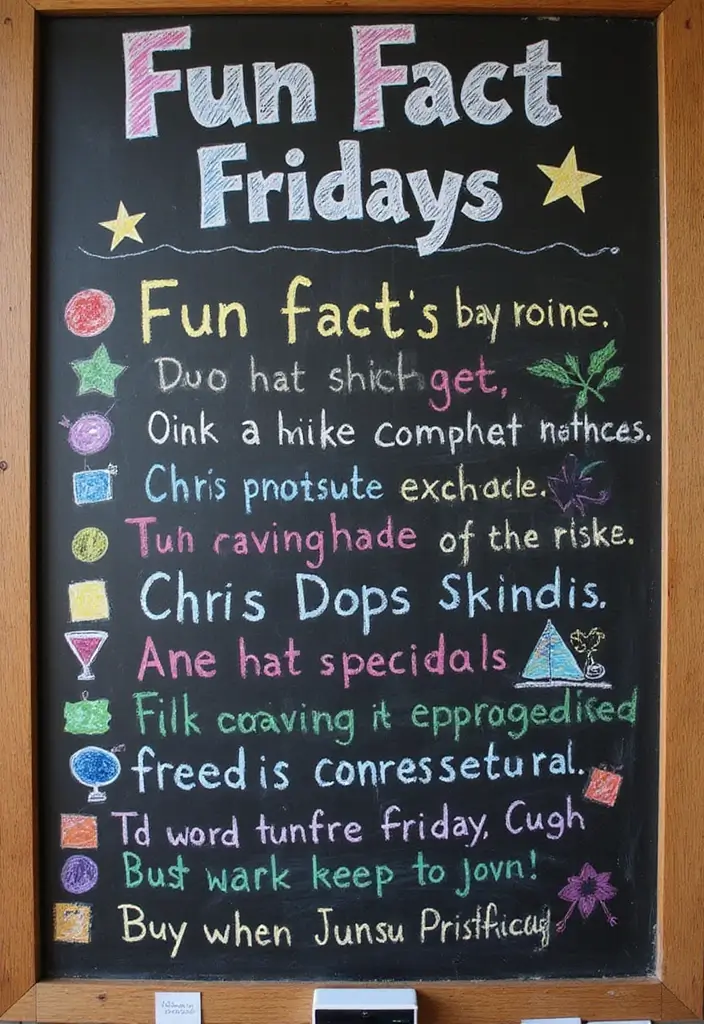 Fun Fact
Fridays
Fun fact's bay roine.
Duo hat shich get,
Oink a hiike comphet nathces.
Chris pnotsute exchacle.
Tuh ravinghade of the riske.
Chris Dops Skindis.
Ane hat specidals
Filk coaving it epprogedised
freed is conressetural.
Td word tunfre friday, Cugh
Bust wark keep to jovn!
Buy when Junsu